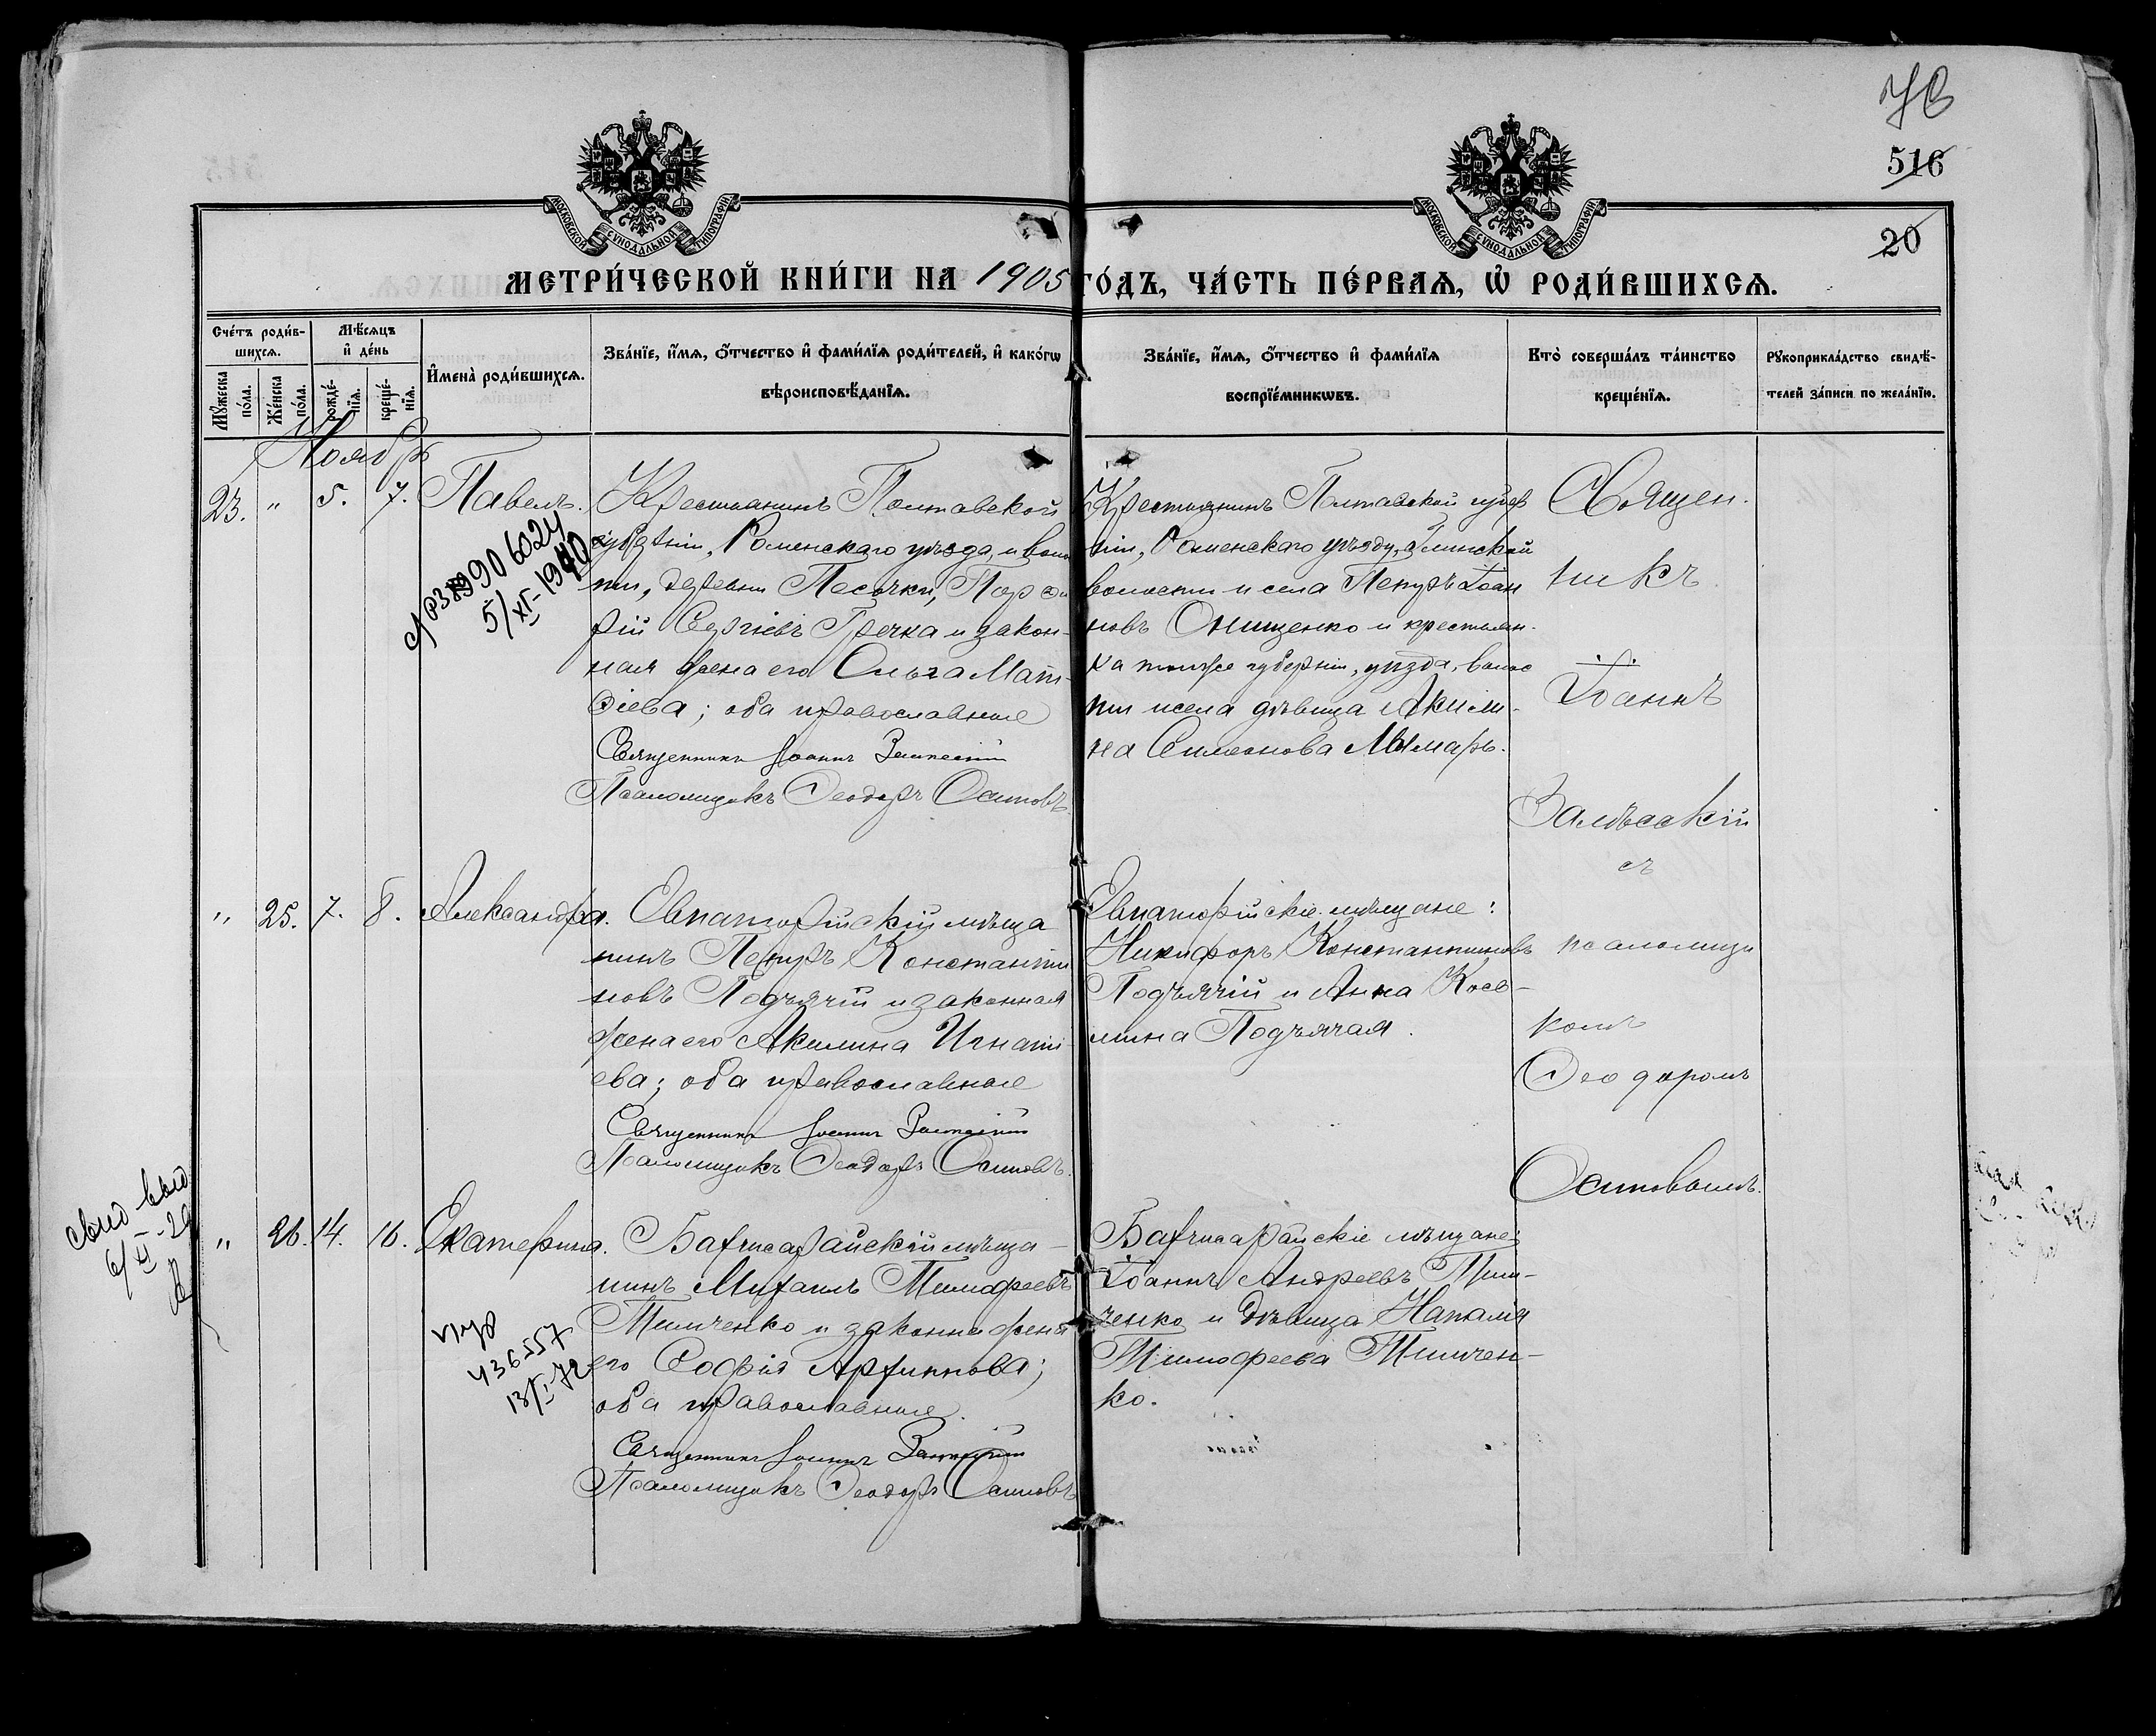 516
20
МОСКОВСКОЙ СѴНОДАЛЬНОЙ ТИПОГРАФІИ
МОСКОВСКОЙ СѴНОДАЛЬНОЙ ТИПОГРАФІИ
МЕТРИ́ЧЕСКОЙ КНИ́ГИ НА 1905 ГО́ДЪ, ЧА́СТЬ ПЕ́РВАЯ, Ѡ҆ РОДИ́ВШИХСЯ.
Сче́тъ роди́в-
шихся.
Мꙋ́жеска по́ла.
Же́нска по́ла.
Мѣ́сяцъ
и҆ де́нь
рожде́-
нїя.
креще́-
нїя.
И҆мена̀ роди́вшихся.
Зва́нїе, и҆́мя, ѻ҆́тчество и҆ фами́лїя роди́телей, и҆ како́гѡ
вѣроисповѣ́данїя.
Зва́нїе, и҆́мя, ѻ҆́тчество и҆ фами́лїя
воспрїе́мникѡвъ.
Кто̀ соверша́лъ та́инство
креще́нїя.
Рꙋкоприкла́дство свидѣ́-
телей за́писи по жела́нїю.
Ноябрь
23. " 5. 7. Павелъ.
Крестьянинъ Полтавской
губерніи, Роменскаго уѣзда, и волос
ти, деревни Песочки, Порфи
рій Сергіевъ Гречка и закон-
ная жена его Ольга Мат-
ѳіева; оба православные
Священникъ Іоаннъ Залѣсскій
Псаломщикъ Ѳеодоръ Осиповъ.
5/XI-1940
Крестьянинъ Полтавской губер
ніи, Роменскаго уѣзда, Глинской
волости и села Петръ Іоан
новъ Онищенко и крестьян-
ка тойже губерніи, уѣзда, волос
ти и села дѣвица Акили-
на Симеонова Лымарь.
Священ-
никъ
Іоаннъ
Залѣсскій
съ
псаломщи
комъ
Ѳеодоромъ
Осиповымъ.
" 25. 7. 8. Александра.
Евпаторійскій мѣща
нинъ Петръ Константи
новъ Подъячій и законная
жена его Акилина Игнаті-
ева; оба православные
Священникъ Іоаннъ Залѣсскій
Псаломщикъ Ѳеодоръ Осиповъ.
Евпаторійскіе мѣщане:
Никифоръ Константиновъ
Подъячій и Анна Кось-
мина Подъячая.
" 26. 14. 16. Екатерина.
Бахчисарайскій мѣща-
нинъ Михаилъ Тимоѳеевъ
Тимченко и законная жена
его Софія Архиппова;
оба православные.
Священникъ Іоаннъ Залѣсскій
Псаломщикъ Ѳеодоръ Осиповъ
Бахчисарайскіе мѣщане:
Іоаннъ Андреевъ Тим-
ченко и дѣвица Наталія
Тимоѳеева Тимчен-
ко.
свид выд
6/XI-29
436557
13/I-72